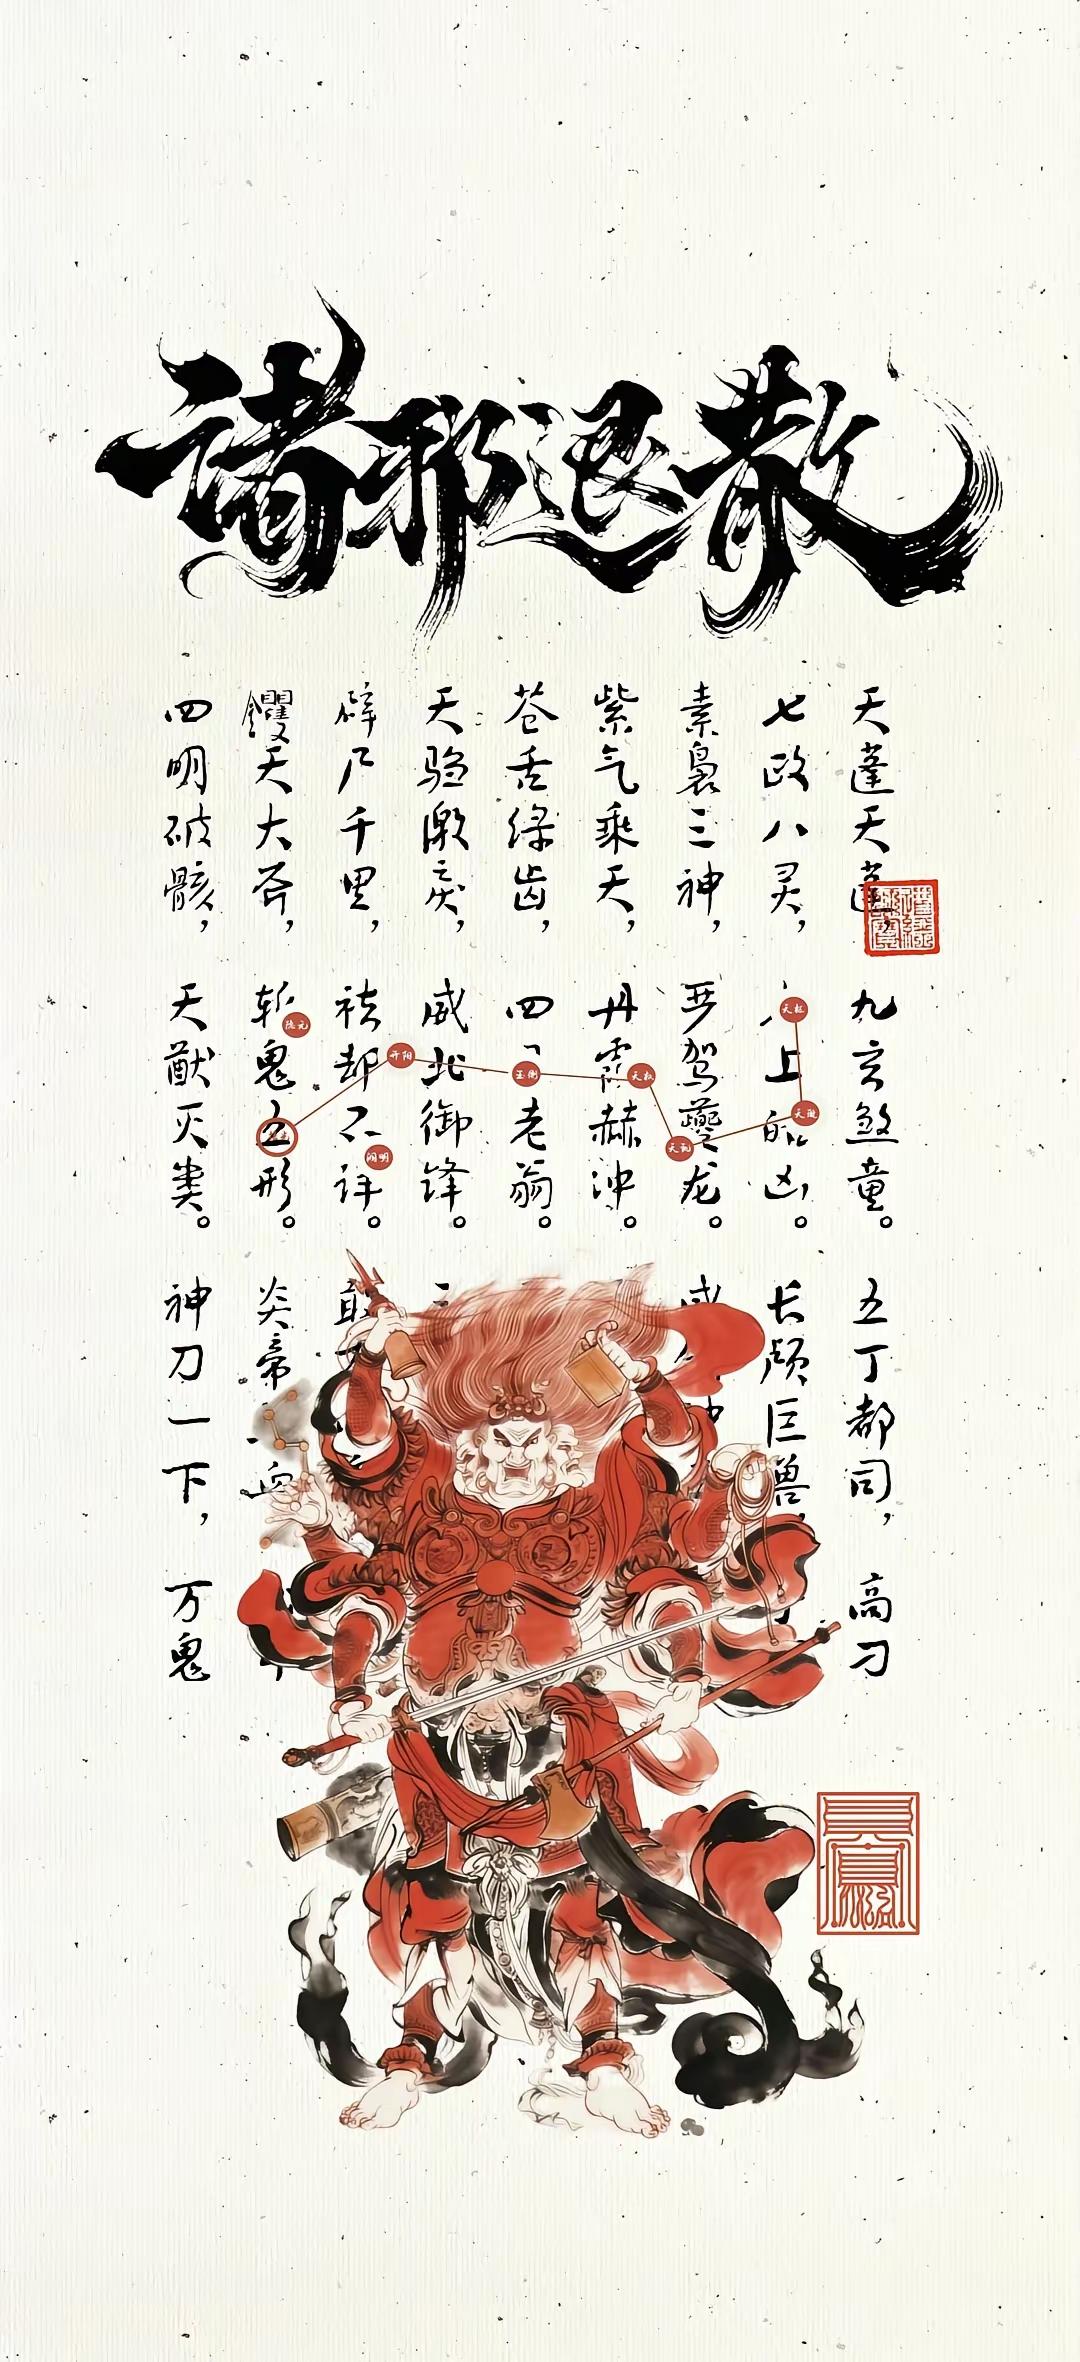 諸邪退散
天蓬天蓬，九玄煞童。五丁都司，高刁
七政八灵，上皓凶。长颅巨兽，
素裊三神，严驾夔龙。威
紫气乘天，丹霞赫冲。
苍舌绿齿，四目老翁。
天驺激戾，威北御锋。三
辟尸千里，祛却不祥。敢
钁天大斧，斩鬼五形。炎帝血
四明破骸，天猷灭类。神刀一下，万鬼
天枢
天璇
天玑
天权
玉衡
开阳
洞明
隐元